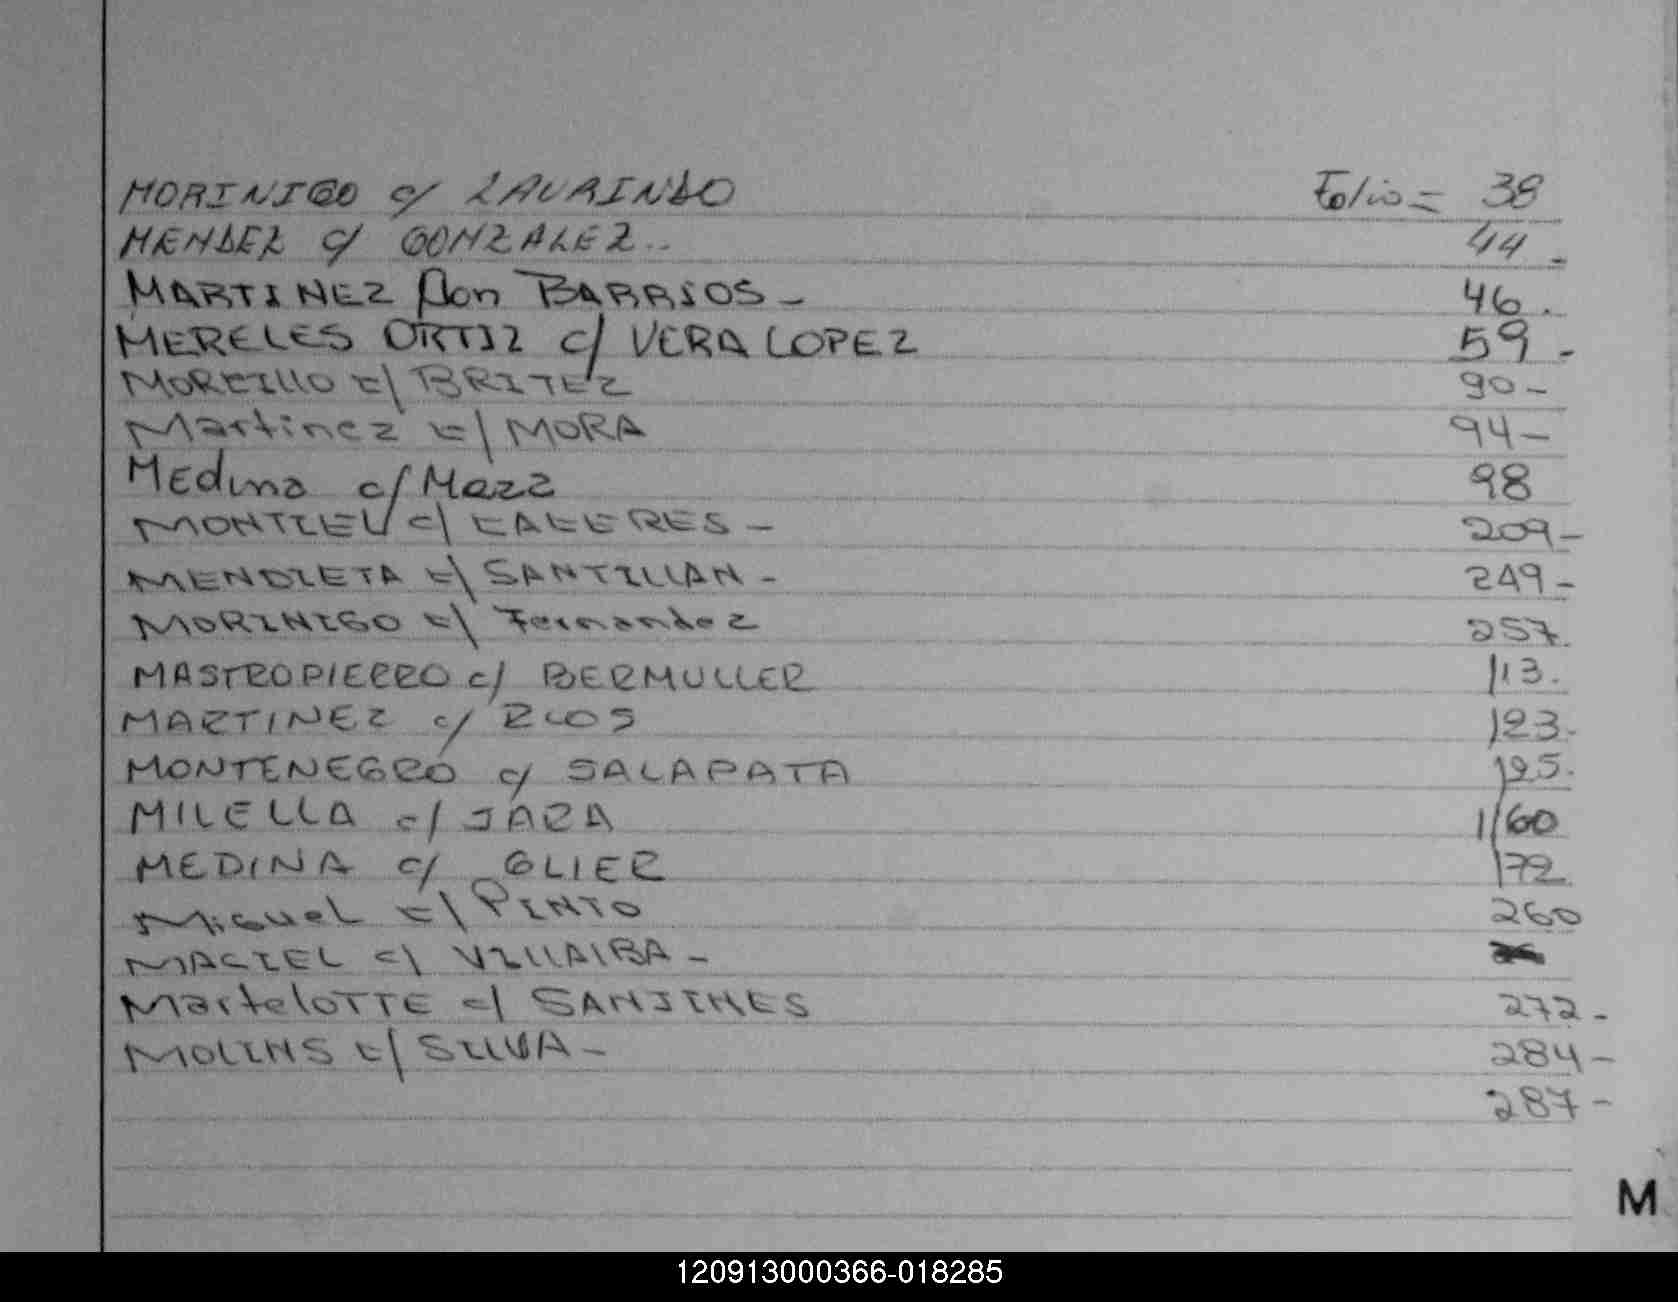 MORINIGO c/ LAURINDO Folio = 38
MENDEZ c/ GONZALEZ.. 44 -
MARTINEZ con BARRIOS - 46.
MERELES ORTIZ c/ VERA LOPEZ 59 -
MORCILLO c/ BRITEZ 90 -
Martinez c/ MORA 94 -
MEDina c/ Meza 98
MONTIEL c/ CACERES - 209 -
MENDIETA c/ SANTILLAN - 249 -
MORINIGO c/ Fernandez 257.
MASTROPIERRO c/ BERMULLER 113.
MARTINEZ c/ RIOS 123.
MONTENEGRO c/ SALAPATA 125.
MILELLA c/ JARA 160
MEDINA c/ GLIER 172
MiGUEL c/ PINTO 260
MACIEL c/ VILLALBA -
MartelOTTE c/ SANJINES 272 -
MOLINS c/ SILVA - 284 -
287 -
M
120913000366-018285